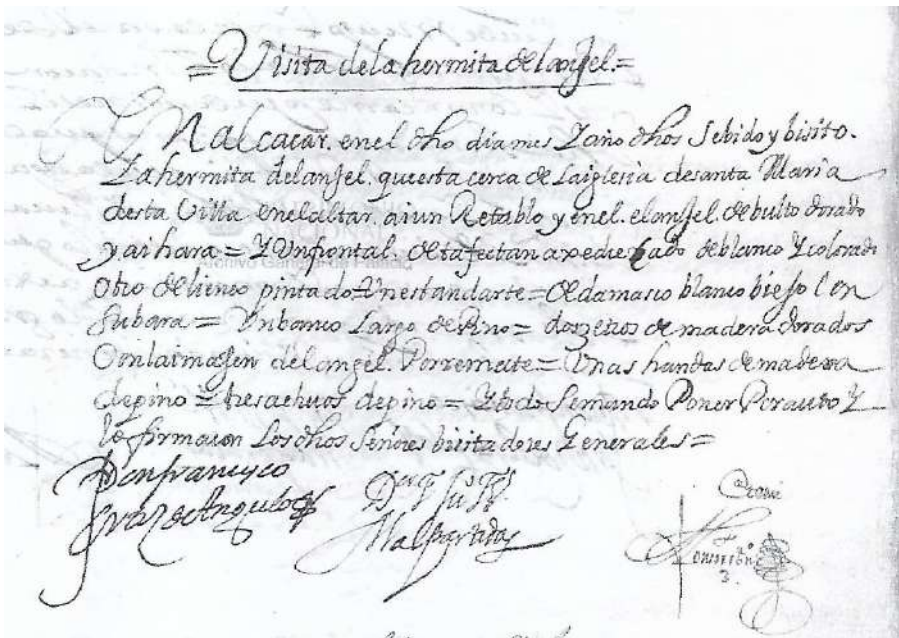 = Visita de la hermita del anjel =
En alcaçar. en el dho dia mes Y año dhos Se bido y bisito.
La hermita del anjel. que esta cerca de La iglesia de santa Maria
desta Villa en el altar. ai un Retablo y en el. el anjel. de bulto dorado
y ai hara = Y Un frontal. de tafectan axedreçado de blanco Y colorado
Archivo General de Palacio
Otro de lienço pintado Un estandarte = de damasco blanco biejo Con
Su bara = Un banco Largo de Pino = dos de madera dorados
Con la imajen del angel. Por remate = Unas handas de madera
de pino = de pino = Y todo Se mando Poner Por auto Y
lo firmaron Los dhos Señores bisitadores Generales =
Don francisco
de Angulo
Malpartida